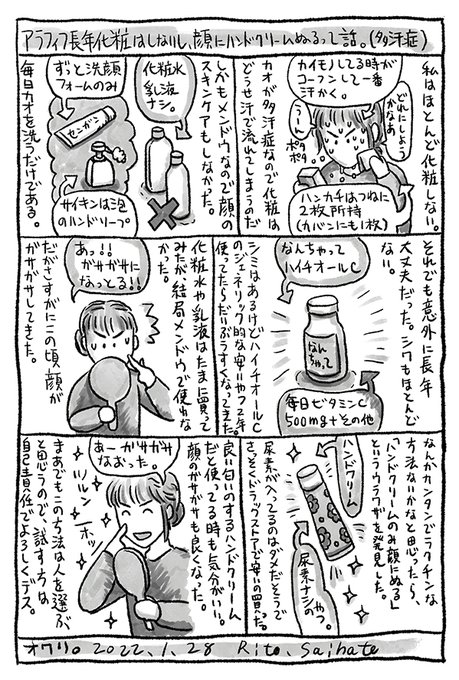 アラフィフ長年化粧はしないし、顔にハンドクリームぬるって話。(多汗症)
私はほとんど化粧しない。
カイモノしてる時が
コーフンして一番
汗かく。
どれにしよう
かなあ
うーん
ポタ
ポタ
ハンカチはつねに
2枚所持
(カバンにも1枚)
カオが多汗症なので化粧は
どうせ汗で流れてしまうのだ
しかもメンドウなので顔の
スキンケアもしなかった。
化粧水
乳液
ナシ。
ずっと洗顔
フォームのみ
センガン
サイキンは泡
のハンドソープ
毎日カオを洗うだけである。
それでも意外に長年
大丈夫だった。シワもほとんど
ない。
なんちゃって
ハイチオールC
なん
ちゃって
毎日ビタミンC
500mg+その他
シミはあるけどハイチオールC
のジェネリック的な安いやつ2年
使ってたらだいぶうすくなってきた。
化粧水や乳液はたまに買って
みたが結局メンドウで使わな
あっ!!
ガサガサに
なっとる!!
だがさすがにこの頃顔が
ガサガサしてきた。
なんかカンタンでラクチンな
方法ないかなと思ったら、
「ハンドクリームのみ顔にぬる」
というウラワザを発見した。
ハンドクリーム
尿素ナシのやつ。
尿素が入ってるのはダメだそうで
さっそくドラッグストアで安いの買った。
良い匂いのするハンドクリーム
だと使ってる時も気分がいい。
顔のガサガサも良くなった。
あーガサガサ
なおった。
ツルン
ホッ
まあでもこの方法は人を選ぶ
と思うので、試す方は
自己責任でよろしくデス。
オワリ。 2022.1.28 Rito.Saihate